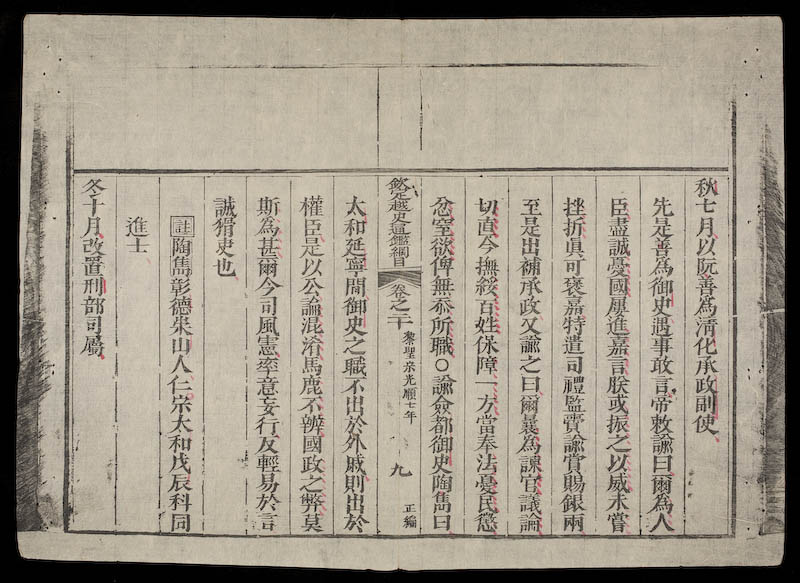 秋七月以阮善爲淸化承政副使
先是善爲御史遇事敢言帝敕諭曰爾爲人
臣盡誠憂國屢進嘉言朕或振之以威未嘗
挫折眞可褒嘉特遣司禮監賫諭賞賜銀兩
至是出補承政又諭之曰爾曩爲諫官議論
切直今撫綏百姓保障一方當奉法憂民懲
忿窒欲俾無忝所職○諭僉都御史陶雋曰
欽定越史通鑑綱目 卷之二十 黎聖宗光順七年 九 正編
太和延寧間御史之職不出於外戚則出於
權臣是以公論混淆馬鹿不辨國政之弊莫
斯爲甚爾今司風憲率意妄行反輕易於言
誠猾吏也
註陶雋彰德朱山人仁宗太和戊辰科同
進士
冬十月改置刑部司屬